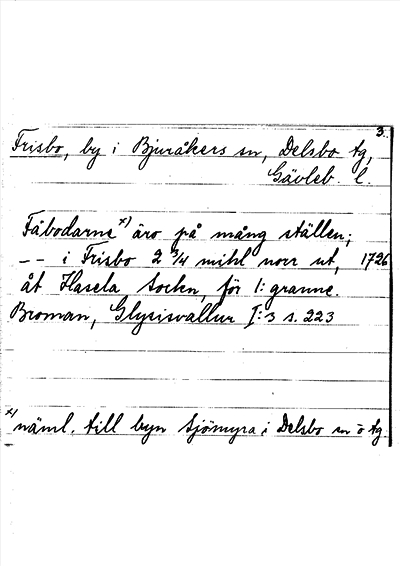 3.
Frisbo, by i Bjuråkers sn, Delsbo tg,
Gävleb. l.
Fäbodarne x) äro på mång ställen;
-- i Frisbo 2 3/4 mihl norr ut, 1726
åt Hasela Socken, för 1: granne.
Broman, Glysisvallur I:3 s. 223
x) näml. till byn Sjömyra i Delsbo sn o tg